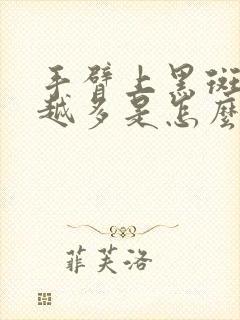 手臂上黑斑
越多是怎麼
菲芙洛